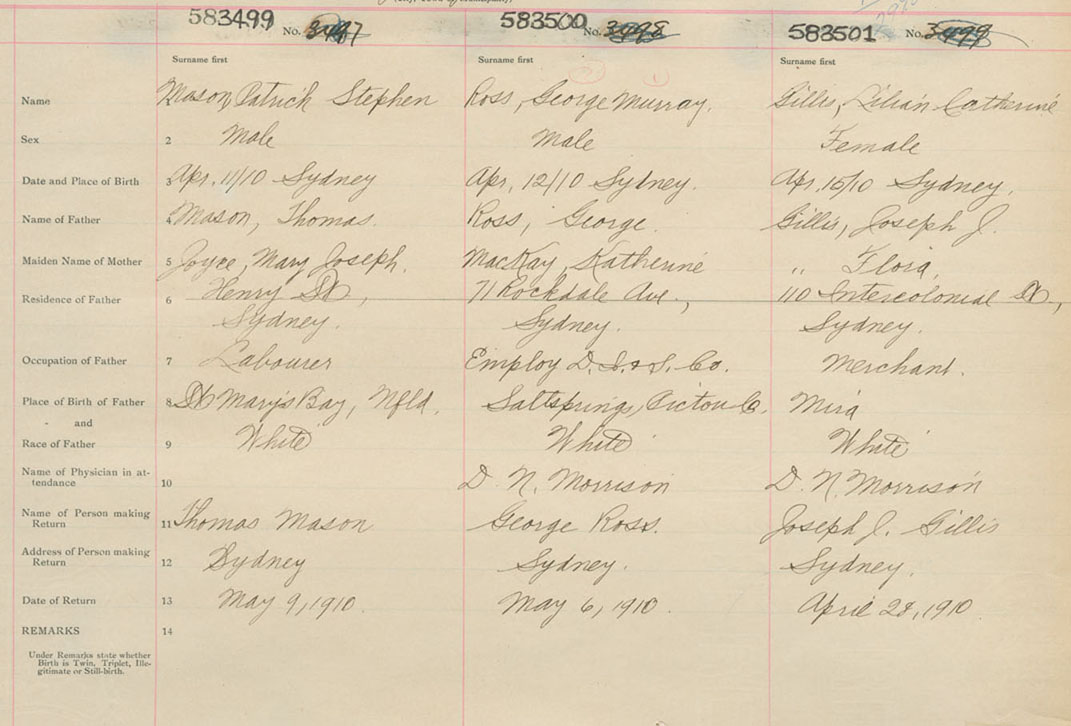 583499 No. 3497 583500 No. 3498 583501 No. 3499
Surname first Surname first Surname first
Name Mason Patrick Stephen Ross, George Murray. Gillis, Lilian Catherine
Sex 2 Male Male Female
Date and Place of Birth 3 Apr. 11/10 Sydney Apr. 12/10 Sydney. Apr. 15/10 Sydney.
Name of Father 4 Mason, Thomas. Ross, George. Gillis, Joseph J.
Maiden Name of Mother 5 Joyce, Mary Joseph. MacKay, Katherine " Flora,
Residence of Father 6 Henry St, 71 Rockdale Ave., 110 Intercolonial St.,
Sydney. Sydney. Sydney.
Occupation of Father 7 Labourer Employ D. I. & S. Co. Merchant.
Place of Birth of Father 8 St Marys Bay, Nfld. Saltsprings, Pictou Co. Mira
and
Race of Father 9 White White White
Name of Physician in at-
tendance 10 D. N. Morrison D. N. Morrison
Name of Person making
Return 11 Thomas Mason George Ross. Joseph J. Gillis
Address of Person making
Return 12 Sydney Sydney. Sydney.
Date of Return 13 May 9, 1910. May 6, 1910. April 28, 1910.
REMARKS 14
Under Remarks state whether
Birth is Twin, Triplet, Ille-
gitimate or Still-birth.